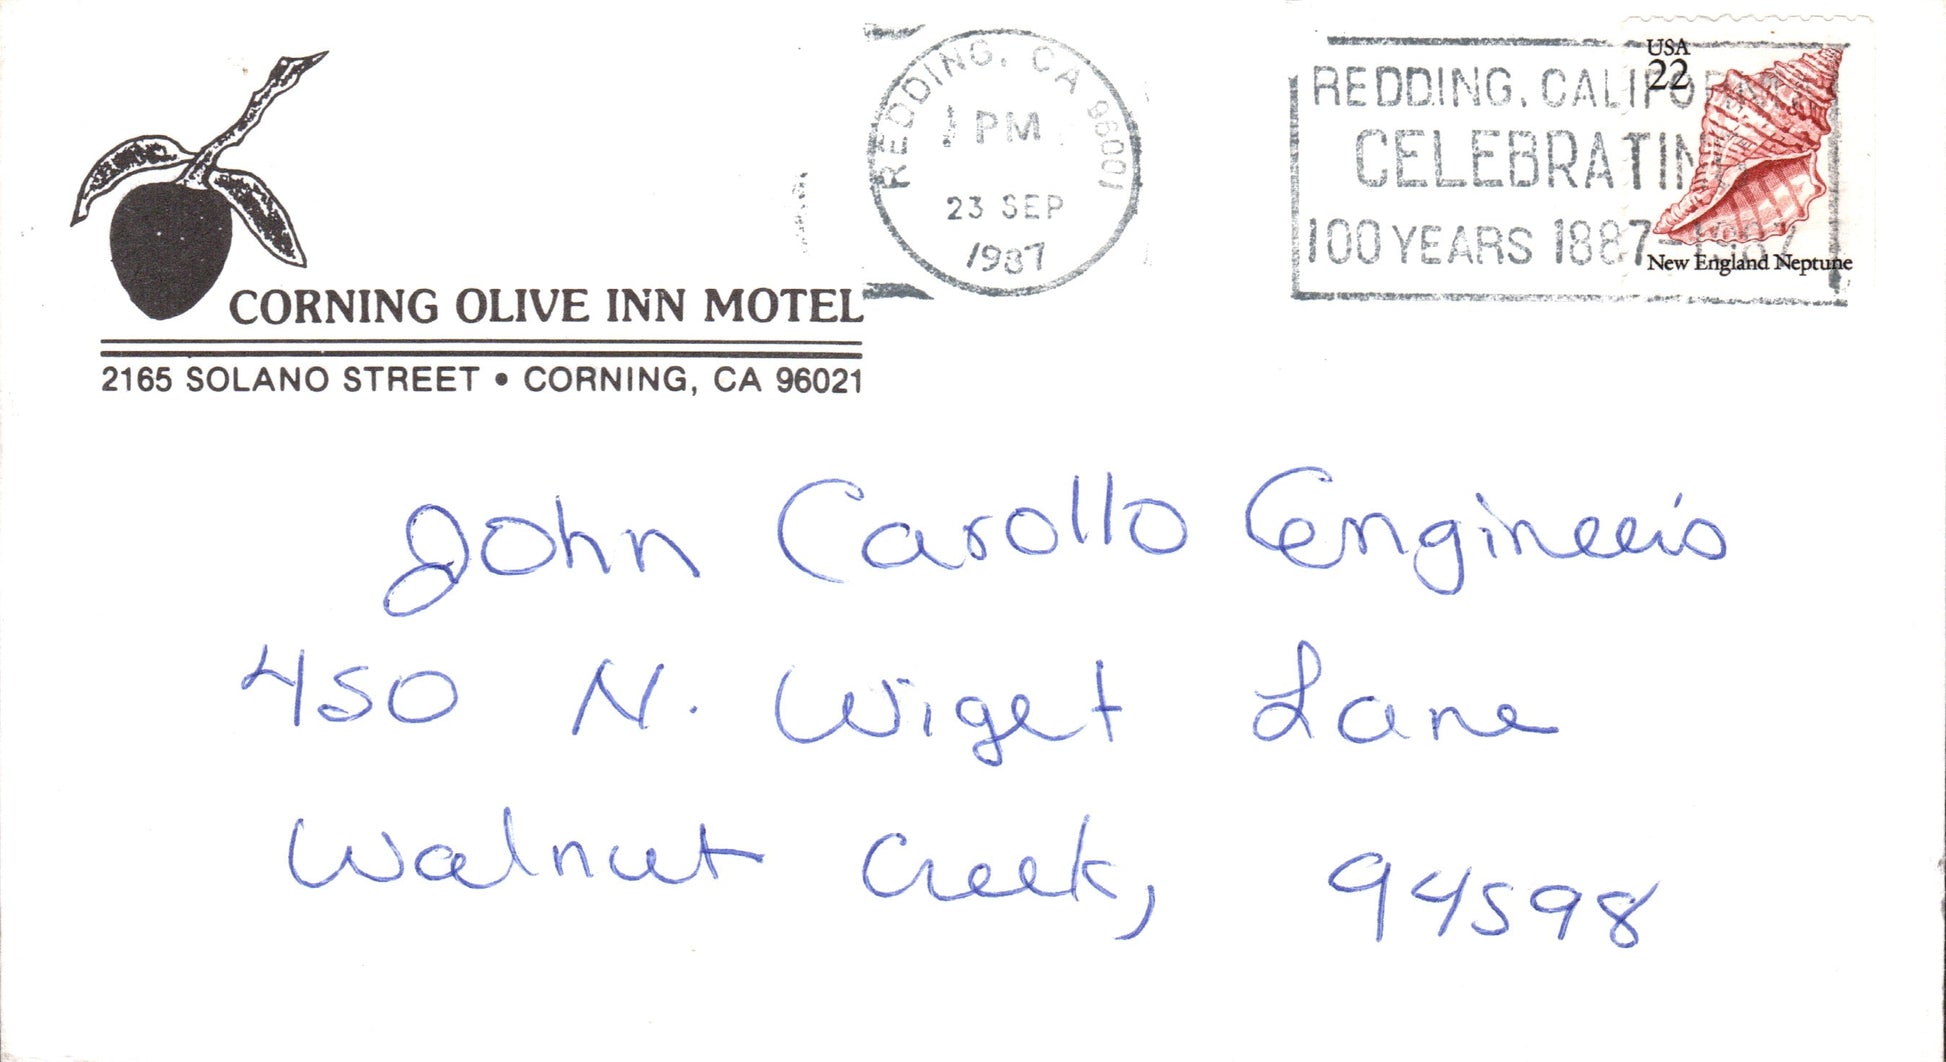 CORNING OLIVE INN MOTEL
2165 SOLANO STREET • CORNING, CA 96021
REDDING, CA 96001
PM
23 SEP
1987
REDDING, CALIFO
CELEBRATIN
100 YEARS 1887-1987
USA
22
New England Neptune
John Carollo Engineers
450 N. Wiget Lane
Walnut Creek, 94598